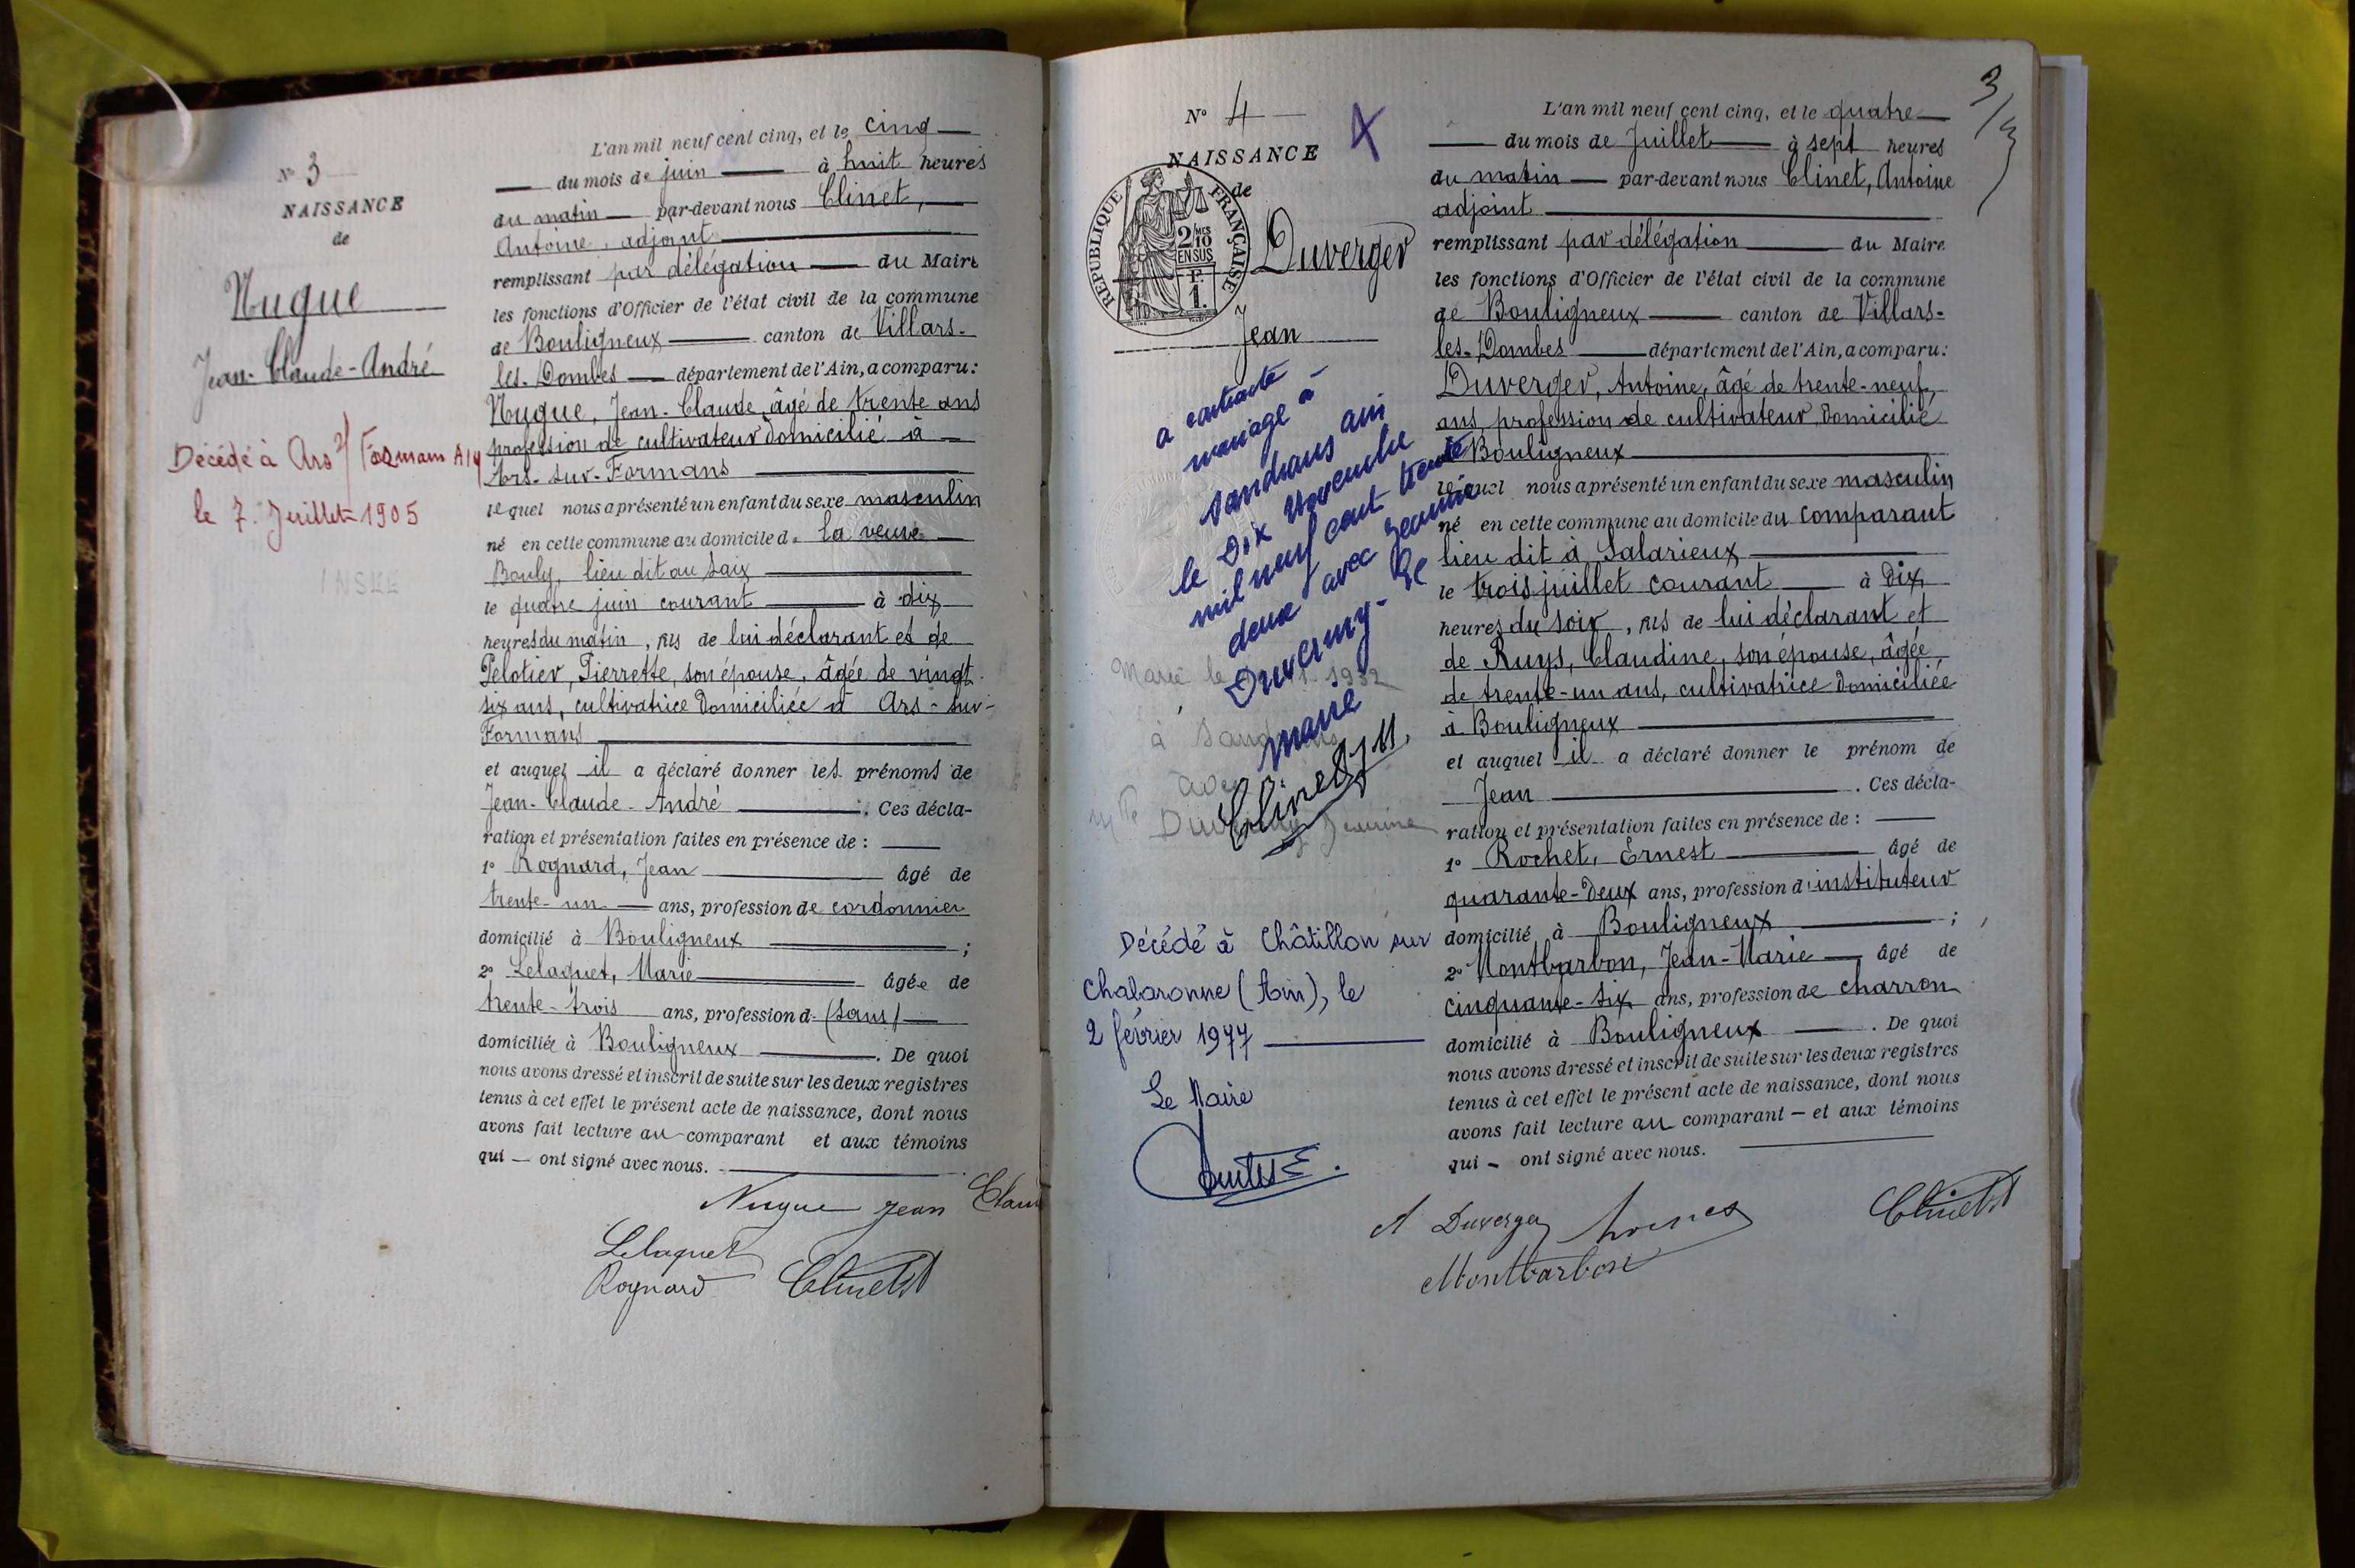 N° 3
NAISSANCE
de
Nugue
Jean-Claude-André
Décédé à Ars s/ Formans Ain
le 7 Juillet 1905
INSEE
L'an mil neuf cent cinq, et le cinq
du mois de juin à huit heures
du matin par-devant nous Clinet,
Antoine, adjoint
remplissant par délégation du Maire
les fonctions d'Officier de l'état civil de la commune
de Bouligneux canton de Villars-
les-Dombes département de l'Ain, a comparu:
Nugue, Jean-Claude, âgé de trente ans
profession de cultivateur domicilié à
Ars-sur-Formans
lequel nous a présenté un enfant du sexe masculin
né en cette commune au domicile de la veuve
Bouly, lieu dit au Saix
le quatre juin courant à dix
heures du matin, fils de lui déclarant et de
Pelotier, Pierrette, son épouse, âgée de vingt-
six ans, cultivatrice domiciliée à Ars-sur-
Formans
et auquel il a déclaré donner les prénoms de
Jean-Claude-André . Ces décla-
ration et présentation faites en présence de :
1° Rognard, Jean âgé de
trente-un ans, profession de cordonnier
domicilié à Bouligneux ;
2° Lelaquet, Marie âgée de
trente-trois ans, profession d (sans)
domiciliée à Bouligneux . De quoi
nous avons dressé et inscrit de suite sur les deux registres
tenus à cet effet le présent acte de naissance, dont nous
avons fait lecture au comparant et aux témoins
qui — ont signé avec nous.
Nugue Jean Claude
Lelaquet
Rognard Clinet
3
N° 4
4
NAISSANCE
de
RÉPUBLIQUE FRANÇAISE
2/10 MES
EN SUS
1 F.
Duverger
Jean
a contracté
mariage à
Sandrans ain
le Dix Novembre
mil neuf cent trente
deux avec Jeannine
Duverny. Le
Maire
Clinet
Marié le 1932
à Sandrans
avec
Mlle Duverny Jeannine
Décédé à Châtillon sur
Chalaronne (Ain), le
2 février 1977
Le Maire
L'an mil neuf cent cinq, et le quatre
du mois de Juillet à sept heures
du matin par-devant nous Clinet, Antoine
adjoint
remplissant par délégation du Maire
les fonctions d'Officier de l'état civil de la commune
de Bouligneux canton de Villars-
les-Dombes département de l'Ain, a comparu:
Duverger, Antoine, âgé de trente-neuf
ans, profession de cultivateur domicilié
à Bouligneux
lequel nous a présenté un enfant du sexe masculin
né en cette commune au domicile du comparant
lieu dit à Salarieux
le trois juillet courant à dix
heures du soir, fils de lui déclarant et
de Ruys, Claudine, son épouse, âgée
de trente-un ans, cultivatrice domiciliée
à Bouligneux
et auquel il a déclaré donner le prénom de
Jean . Ces décla-
ration et présentation faites en présence de :
1° Rochet, Ernest âgé de
quarante-deux ans, profession d'instituteur
domicilié à Bouligneux ;
2° Montbarbon, Jean-Marie âgé de
cinquante-six ans, profession de charron
domicilié à Bouligneux . De quoi
nous avons dressé et inscrit de suite sur les deux registres
tenus à cet effet le présent acte de naissance, dont nous
avons fait lecture au comparant — et aux témoins
qui — ont signé avec nous.
A Duverger Clinet
Montbarbon